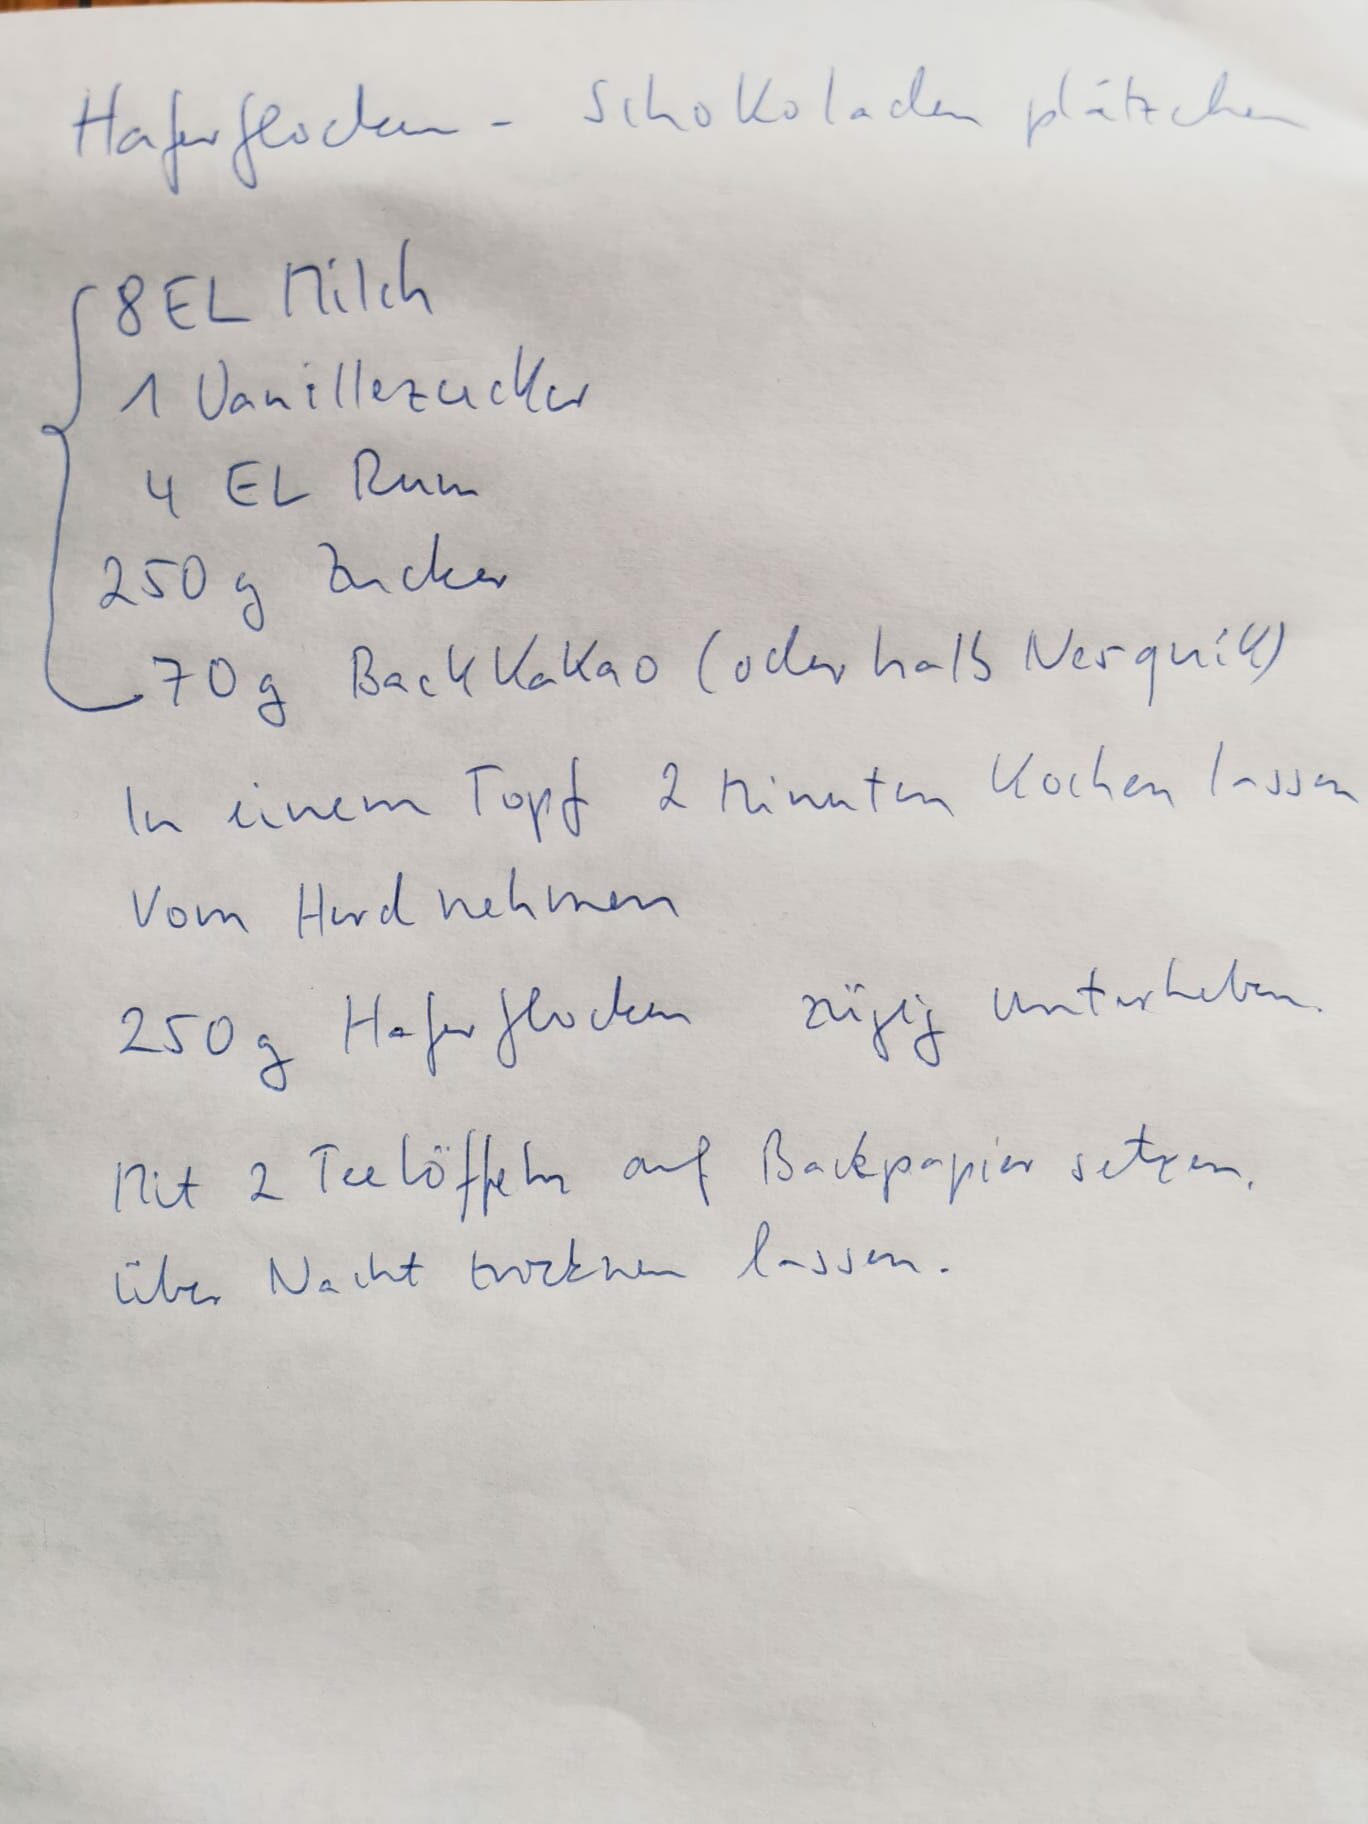 Haferflocken - Schokoladen plätzchen
8 EL Milch
1 Vanillezucker
4 EL Rum
250 g Zucker
70 g Back Kakao (oder halb Nesquik)
In einem Topf 2 Minuten Kochen lassen
Vom Herd nehmen
250 g Haferflocken zügig unterheben.
Mit 2 Teelöffeln auf Backpapier setzen.
über Nacht trocknen lassen.